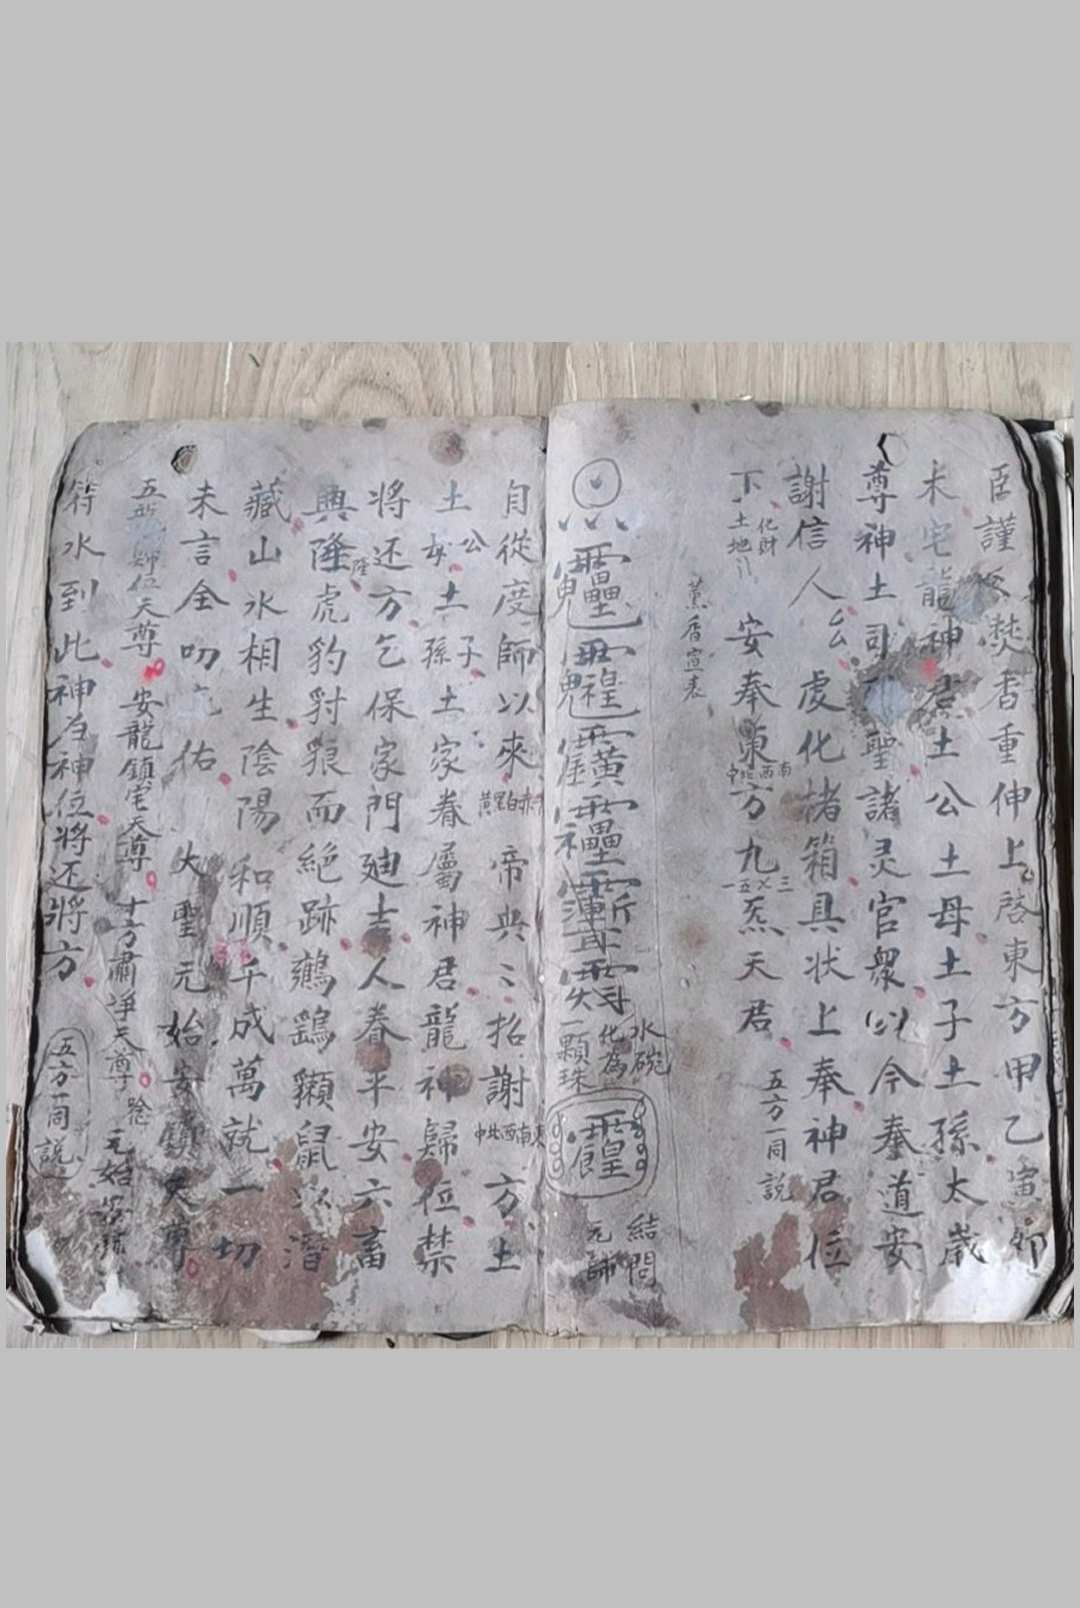 臣謹焚香重伸上啓東方甲乙寅卯
木宅龍神君土公土母土子土孫太歲
尊神土司聖諸灵官衆以今奉道安
謝信人厶厶處化楮箱具状上奉神君位
下 化財土地 安奉東方九炁天君
南西北中
三七五一
五方一同説
薰香宣表
水碗化為一顆珠
結問元師
自從度師以來 帝典〻招謝 方土
赤白黑黄
東南西北中
土公土母土子孫土家眷屬神君龍神歸位禁
将还方乞保家門廸吉人眷平安六畜
興隆虎豹豺狼而絶跡鷂鷄獺鼠以潛
隆
藏山水相生陰陽和順千成萬就一切
未言全叨佑 大聖元始安鎮天尊
五龍 位天尊 安龍鎮宅天尊 十方肅淨天尊 唸元始安鎮
符水到此神為神位将还將方
五方一同説